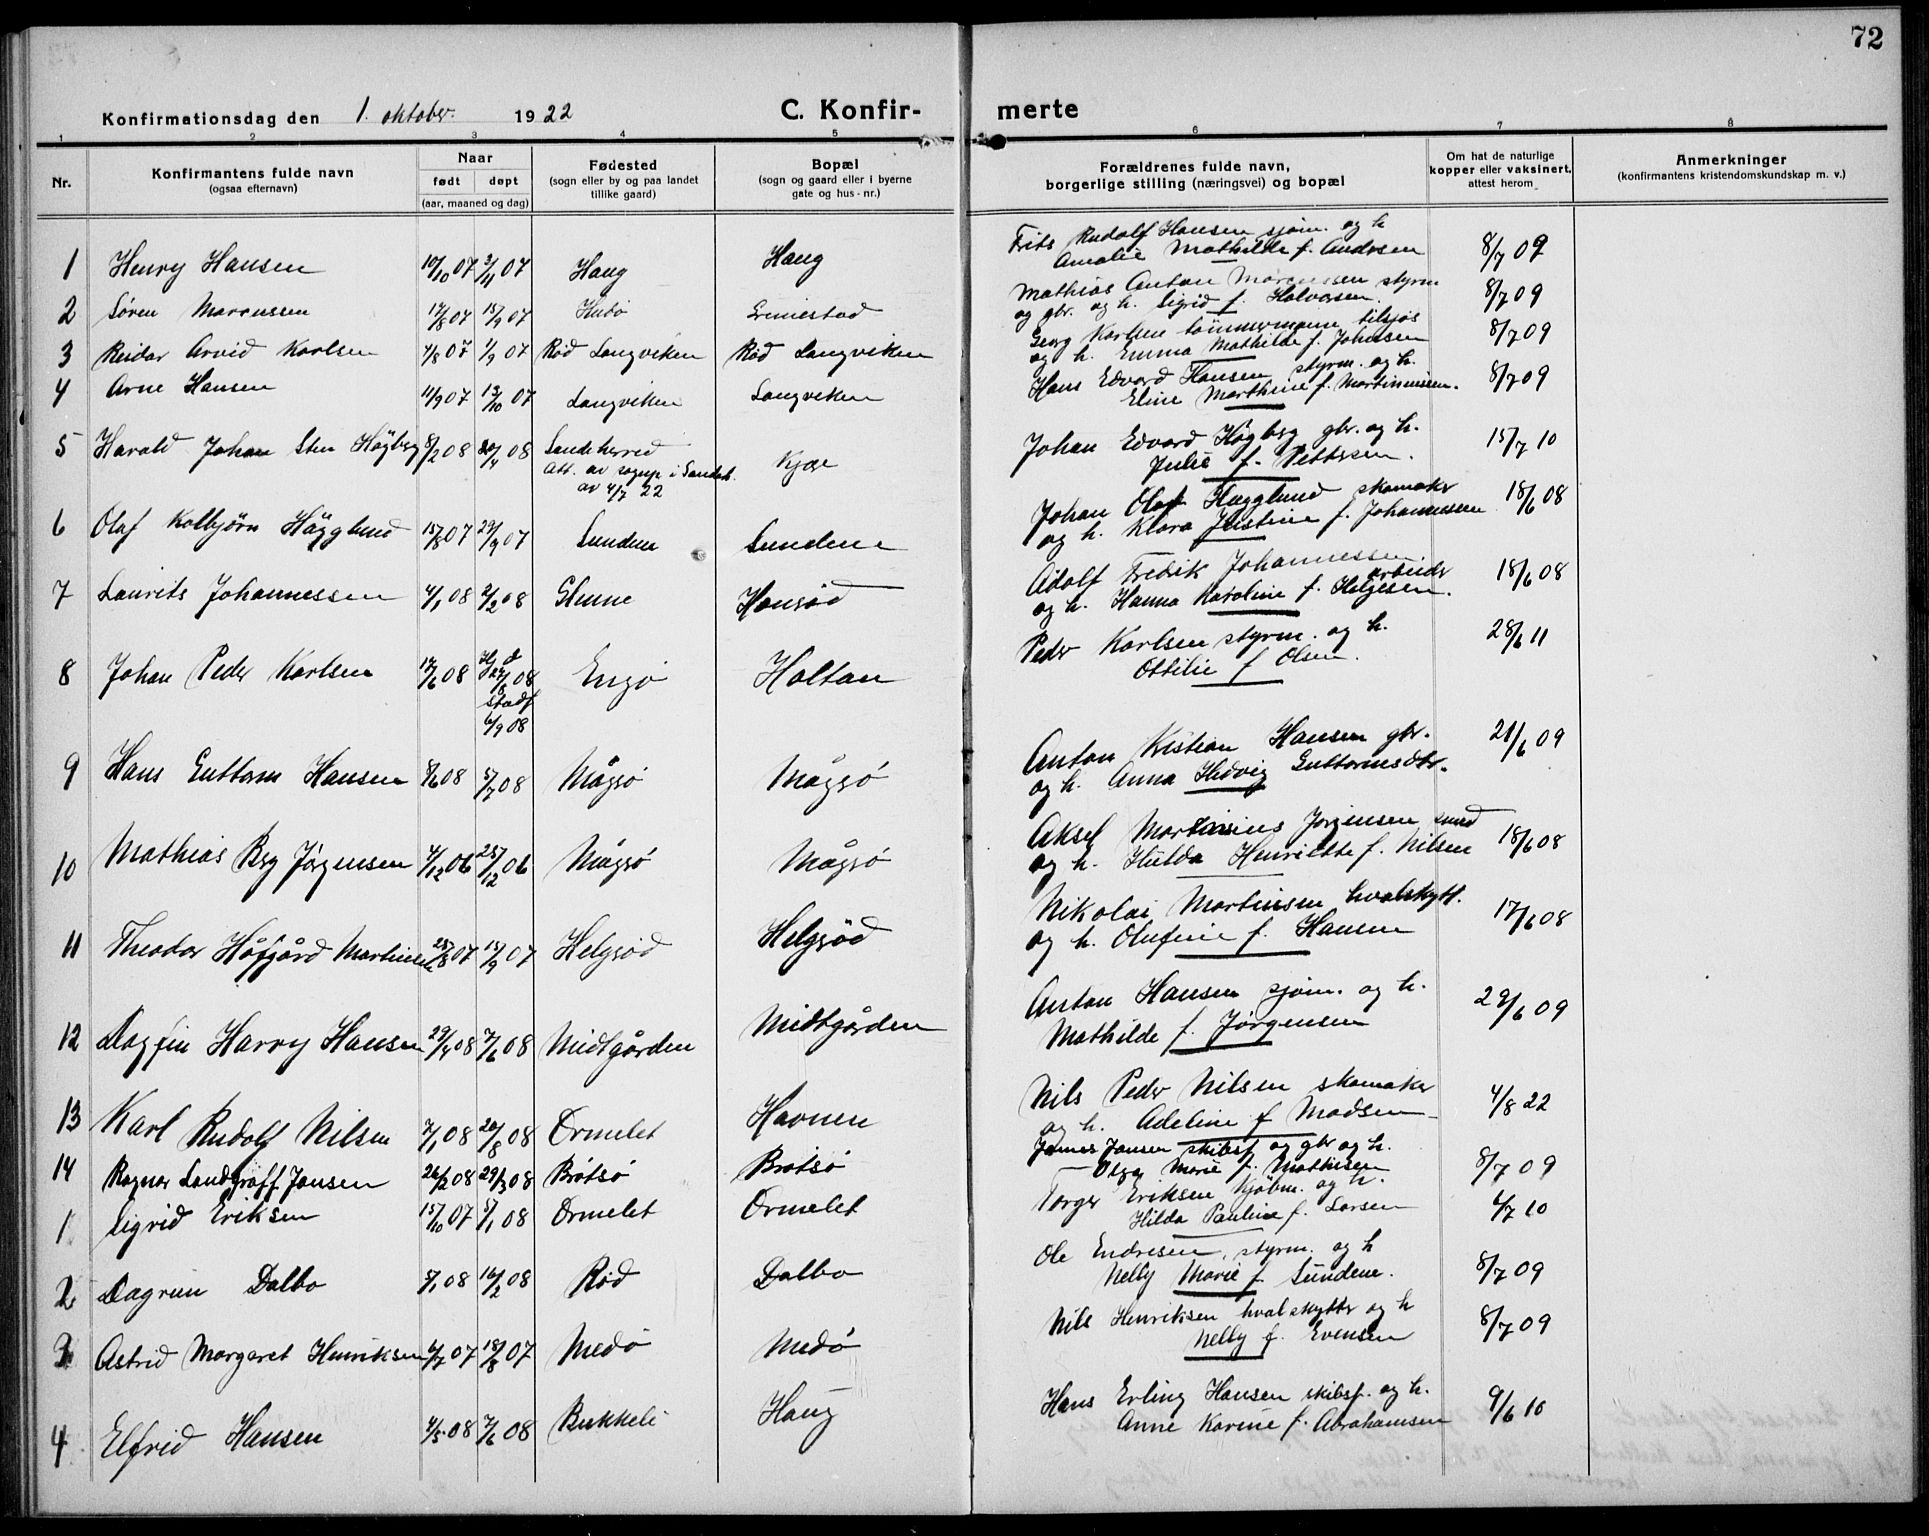 72
Konfirmationsdag den 1. oktober. 1922
C. Konfirmerte
1 2 3 4 5 6 7 8
Nr.
Konfirmantens fulde navn
(ogsaa efternavn)
Naar
født døpt
(aar, maaned og dag)
Fødested
(sogn eller by og paa landet
tillike gaard)
Bopæl
(sogn og gaard eller i byerne
gate og hus-nr.)
Forældrenes fulde navn,
borgerlige stilling (næringsvei) og bopæl
Om hat de naturlige
kopper eller vaksinert,
attest herom
Anmerkninger
(konfirmantens kristendomskundskap m. v.)
1 Henry Hansen 10/10 07 3/11 07 Haug Haug
Frits Rudolf Hansen sjøm. og h.
Amalie Mathilde f. Andersen 8/7 09
2 Søren Marcussen 17/8 07 15/9 07 Hubø Grimestad
Mathias Anton Marcussen styrm
og gbr. og h. Sigrid f. Halvorsen. 8/7 09
3 Reidar Arvid Karlsen 4/8 07 1/9 07 Rød Langviken Rød Langviken
Georg Karlsen tømmermann tilsjøs
og h. Emma Mathilde f. Johansen 8/7 09
4 Arne Hansen 11/9 07 13/10 07 Langviken Langviken
Hans Edvard Hansen styrm. og h.
Eline Marthine f. Martinussen. 8/7 09
5 Harald Johan Sten Högberg 8/2 08 20/4 08 Sandeherred
Att. av sognpr. i Sandeh.
av 4/7 22
Kjær
Johan Edvard Högberg gbr. og h.
Julie f. Pettersen. 15/7 10
6 Olaf Kolbjørn Hägglund 15/8 07 29/9 07 Sundene Sundene
Johan Olaf Hägglund skomaker
og h. Klara Justine f. Johannessen 18/6 08
7 Laurits Johannessen 4/1 08 2/2 08 Glenne Hansød
Adolf Fredrik Johannessen
arbeider
og h. Hanna Karoline f. Helgesen. 18/6 08
8 Johan Peder Karlsen 17/6 08 Hj d
27/8 08
stadf
6/9 08
Engø Holtan
Peder Karlsen styrm. og h.
Ottilie f Olsen. 28/6 11
9 Hans Guttorm Hansen 8/6 08 5/7 08 Mågsø Mågsø
Anton Kristian Hansen gbr.
og h. Anna Hedvig Guttormsdtr. 21/6 09
10 Mathias Berg Jørgensen 4/12 06 25/12 06 Mågsø Mågsø
Aksel Martinius Jørgensen smed
og h. Hulda Henriette f. Nilsen 18/6 08
11 Theodor Håfgård Martinsen 25/8 07 15/9 07 Helgsød Helgsød
Nikolai Martinsen hvalskytt.
og h. Olufine f. Hansen 17/6 08
12 Dagfin Harry Hansen 29/4 08 7/6 08 Midtgården Midtgården
Anton Hansen sjøm. og h.
Mathilde f. Jørgensen 29/6 09
13 Karl Rudolf Nilsen 7/1 08 20/8 08 Ormelet Havnen
Nils Peder Nilsen skomaker
og h. Adeline f Madsen 4/8 22
14 Ragnar Landgraff Jansen 26/2 08 29/3 08 Brøtsø Brøtsø
James Jansen skibsf og gbr og h.
Olga Marie f. Mathisen 8/7 09
1 Sigrid Eriksen 15/10 07 5/1 08 Ormelet Ormelet
Torger Eriksen kjøbm. og h.
Hilda Pauline f. Larsen 4/7 10
2 Dagrun Dalbo 8/1 08 16/2 08 Rød Dalbo
Ole Endresen, styrm. og h
Nelly Marie f Sundene. 8/7 09
3 Astrid Margaret Henriksen 6/7 07 18/8 07 Medø Medø
Nils Henriksen hvalskytter og h
Nelly f. Evensen 8/7 09
4 Elfrid Hansen 4/5 08 7/6 08 Bukkeli Haug
Hans Erling Hansen skibsf. og h.
Anne Karine f. Abrahamsen 9/6 10